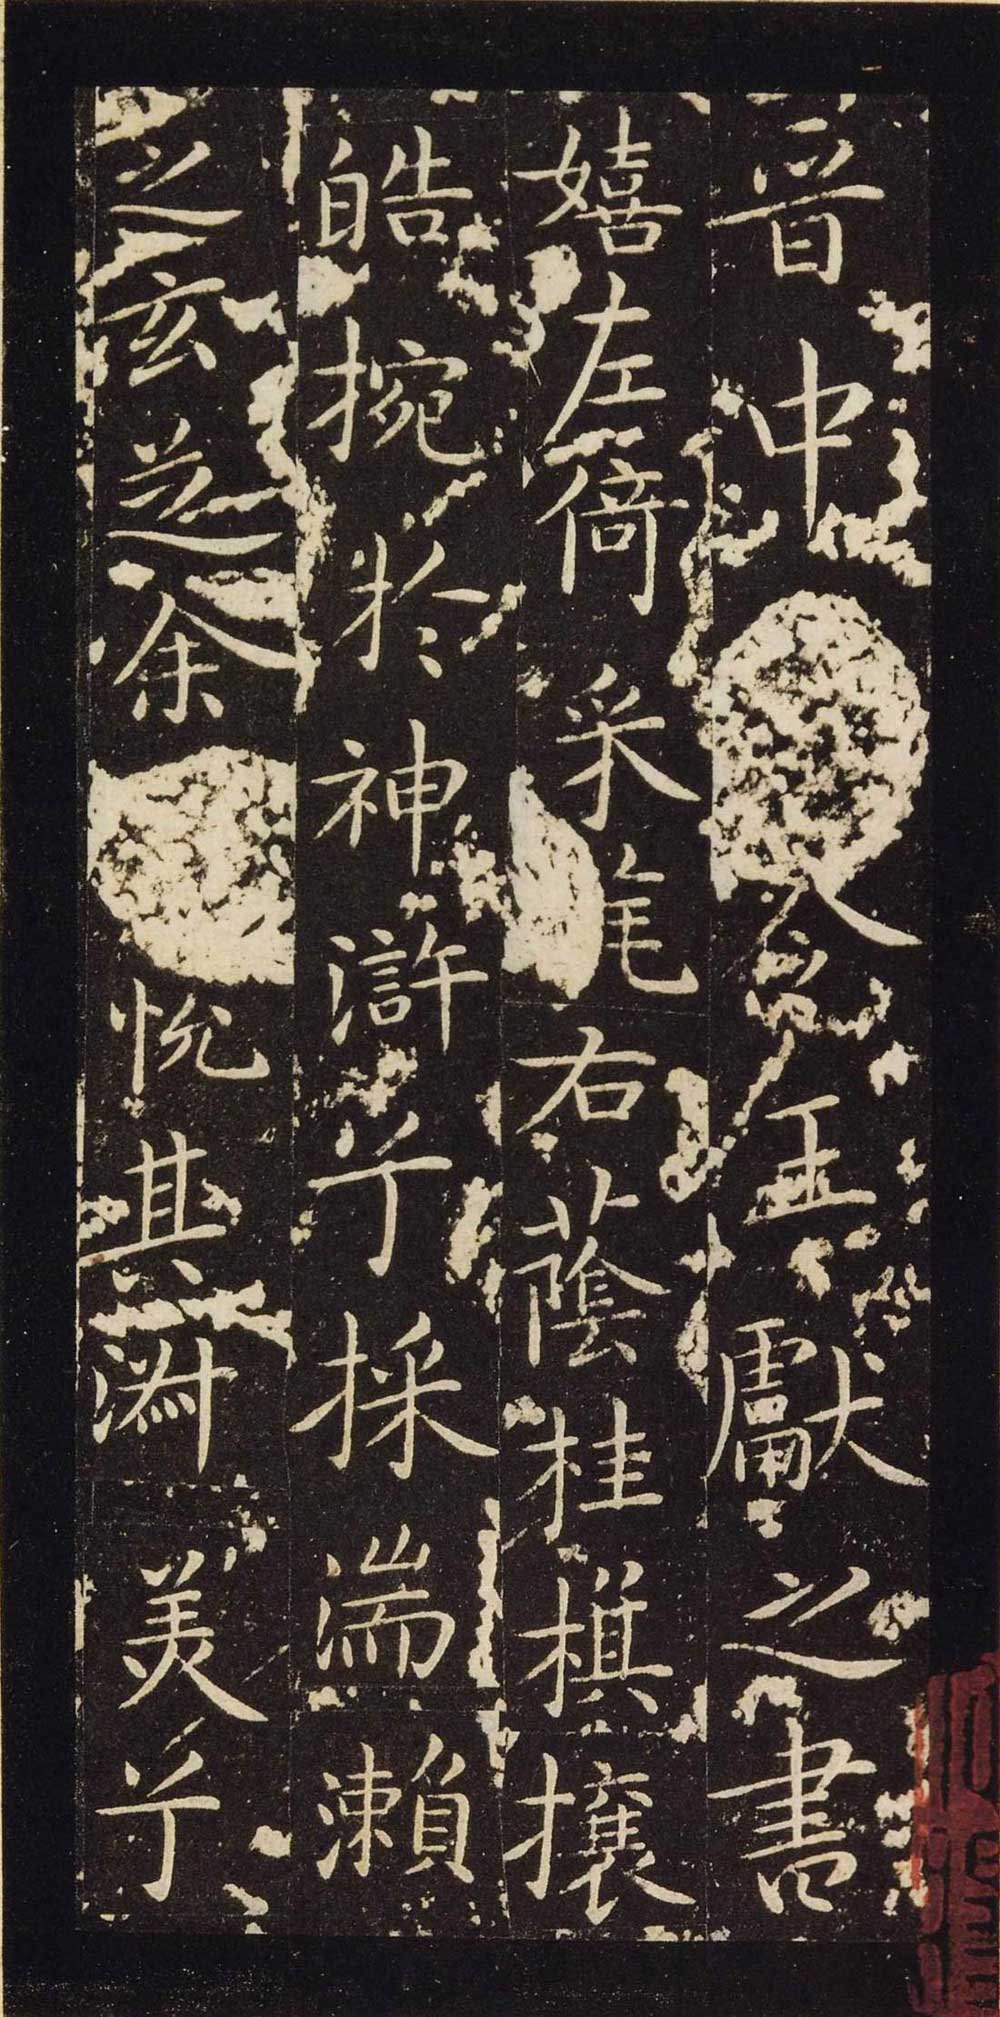 晉中令王獻之書
嬉左倚采旄右蔭桂棋攘
皓捥於神滸兮採湍瀨
之玄芝余悅其淑美兮